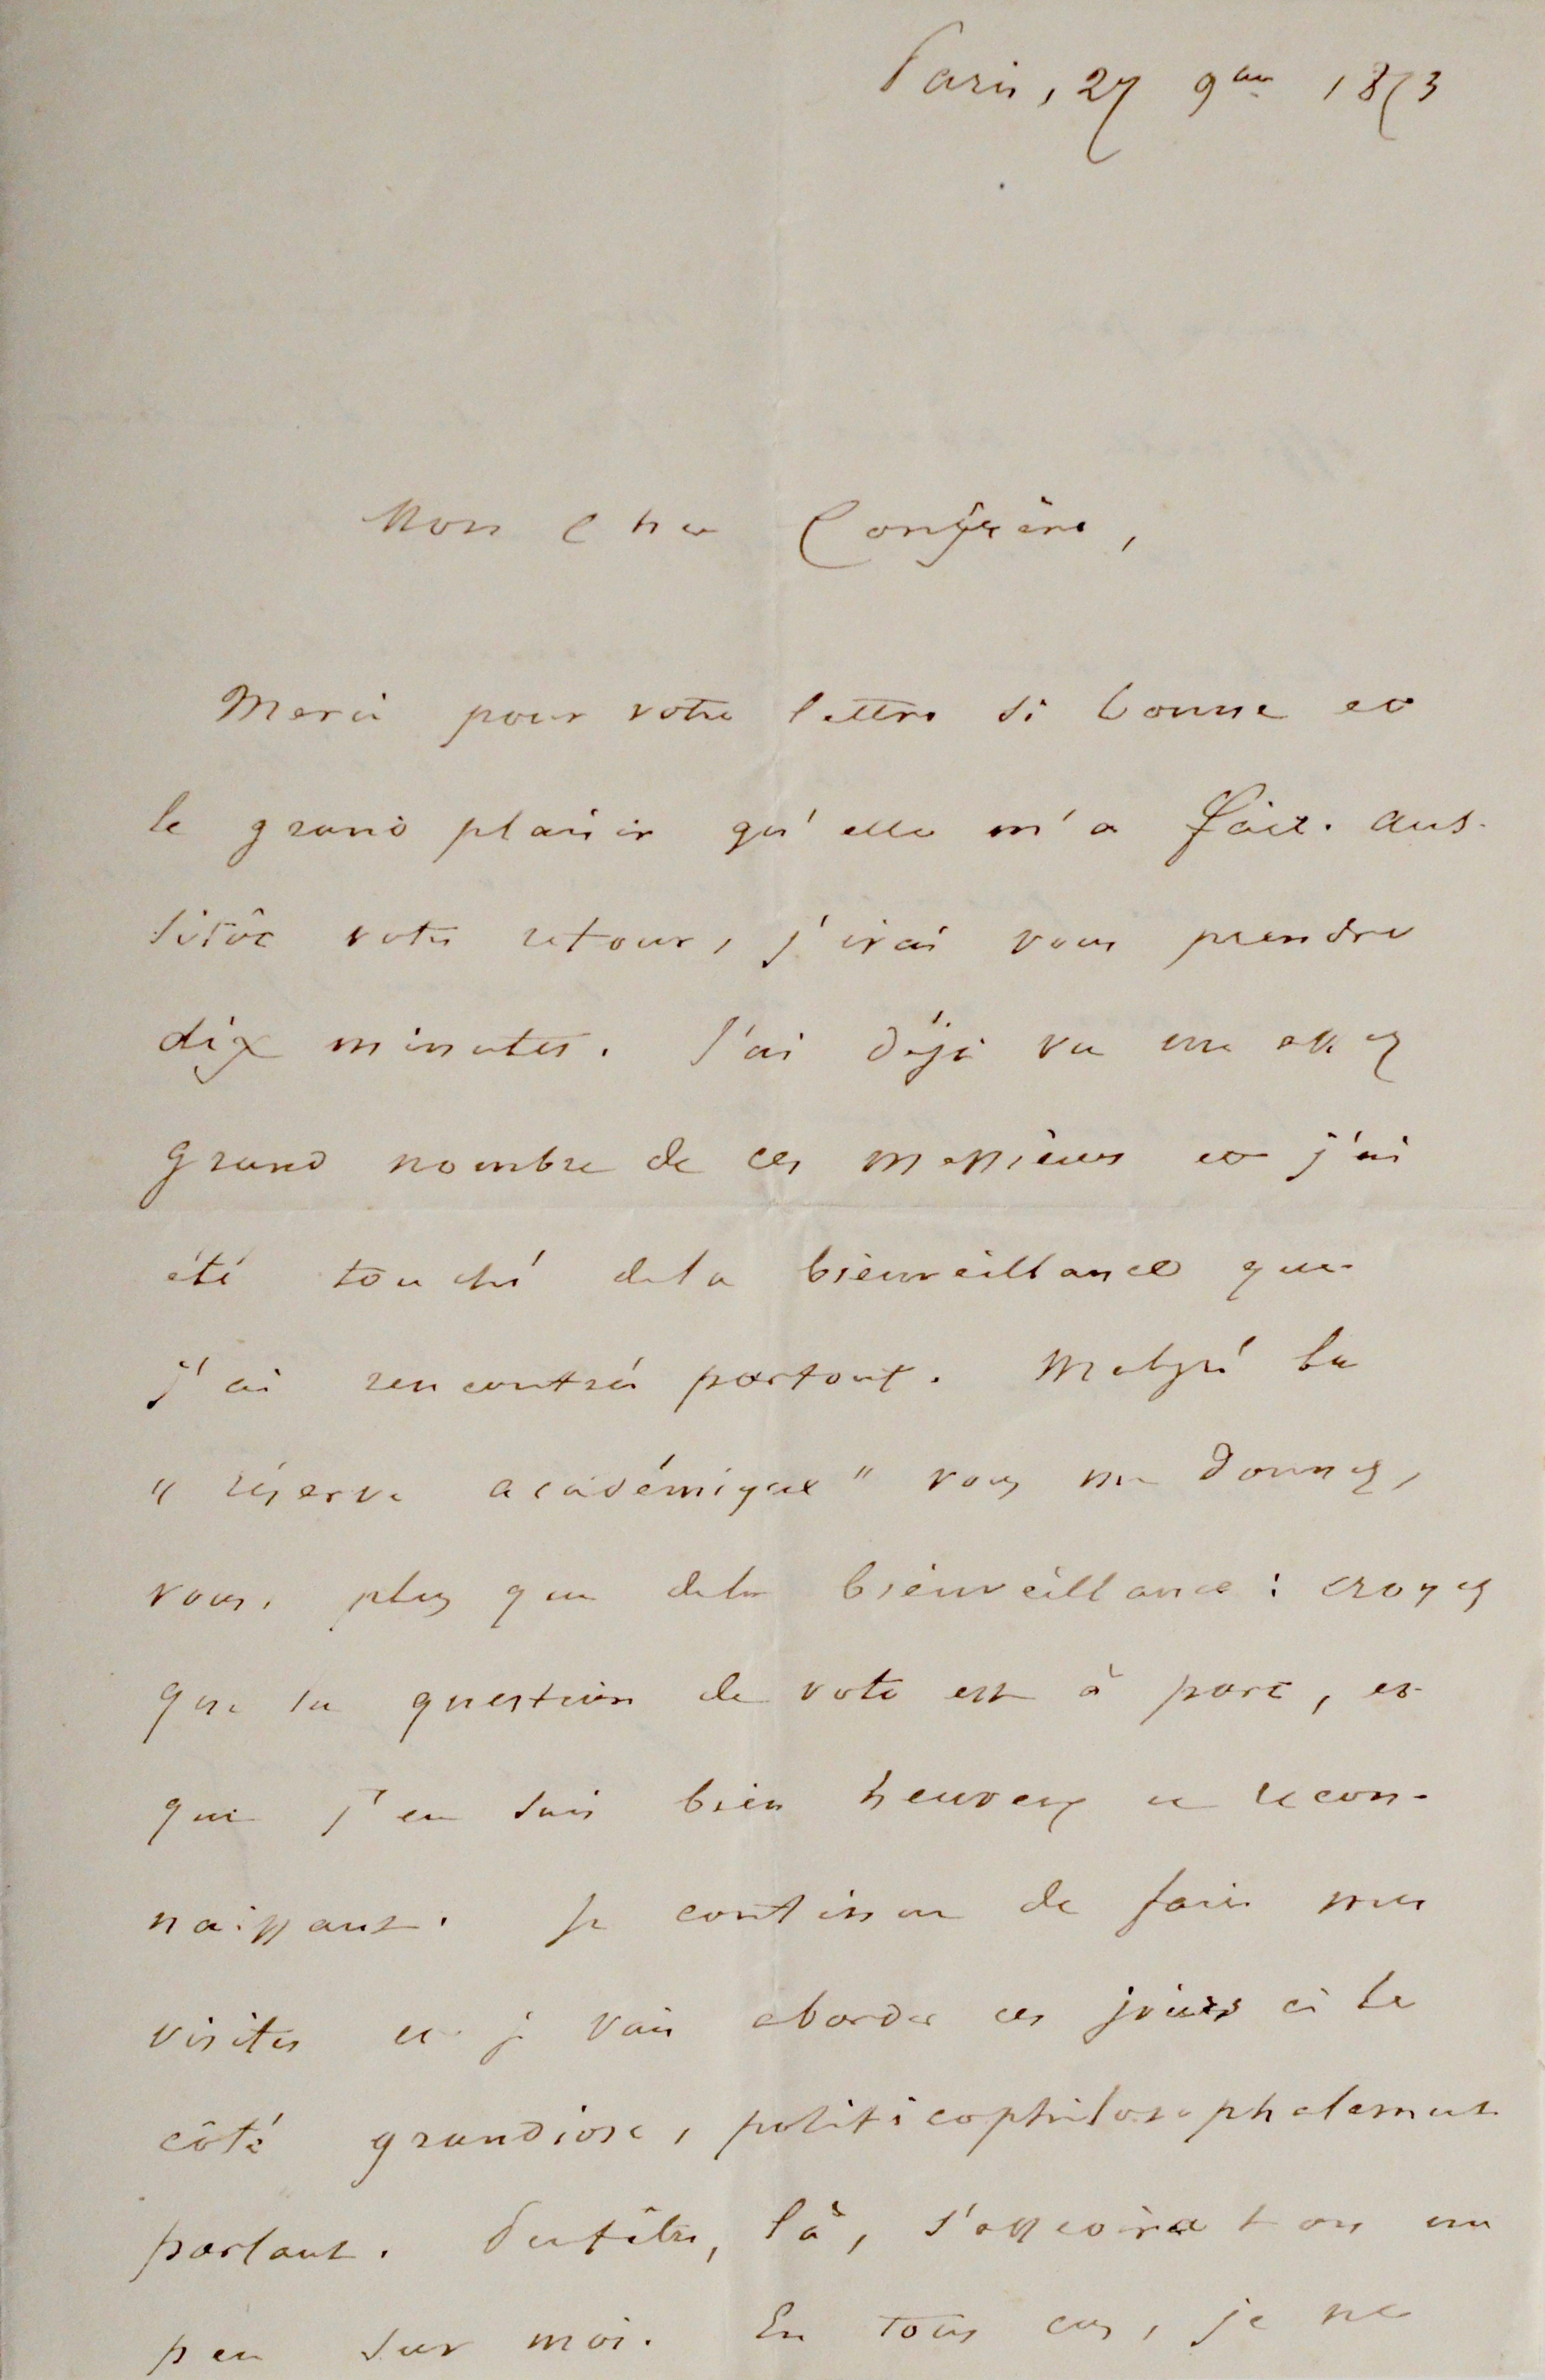 Paris, 27 9bre 1873
Mon cher Confrère,
Merci pour votre lettre si bonne et
le grand plaisir qu'elle m'a fait. Aus-
sitôt votre retour, j'irai vous prendre
dix minutes. J'ai déjà vu un assez
grand nombre de ces messieurs et j'ai
été touché de la bienveillance que
j'ai rencontrée partout. Malgré la
"réserve académique" vous me donnez,
vous, plus que de la bienveillance : croyez
que la question de vote est à part, et
que j'en suis bien heureux et recon-
naissant. Je continue de faire mes
visites et je vais aborder ces jours ci le
côté grandiose, politicophilosophalement
parlant. Peutêtre, là, s'asseoira t on un
peu sur moi. En tous cas, je ne